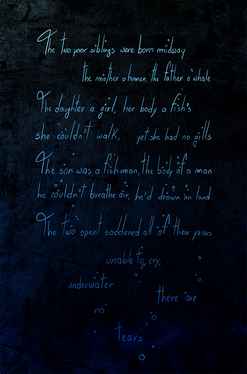 The two poor siblings were born midway
the mother a human, the father a whale
The daughter a girl, her body a fish's
she couldn't walk, yet she had no gills
The son was a fishman, the body of a man
he couldn't breathe air, he'd drown on land
The two spent saddened all of their years
unable to cry,
underwater
there are
no
tears